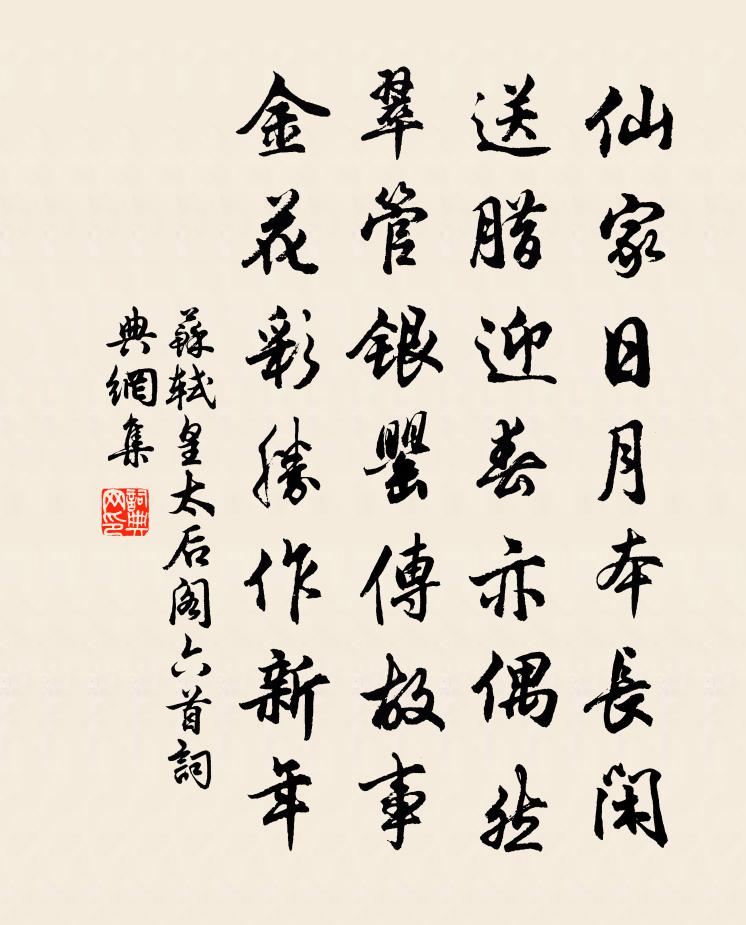 仙家日月本長閑
送腊迎春亦偶然
翠管銀罌傳故事
金花彩勝作新年
蘇軾皇太后阁六首詞
典網集
詞典
网印